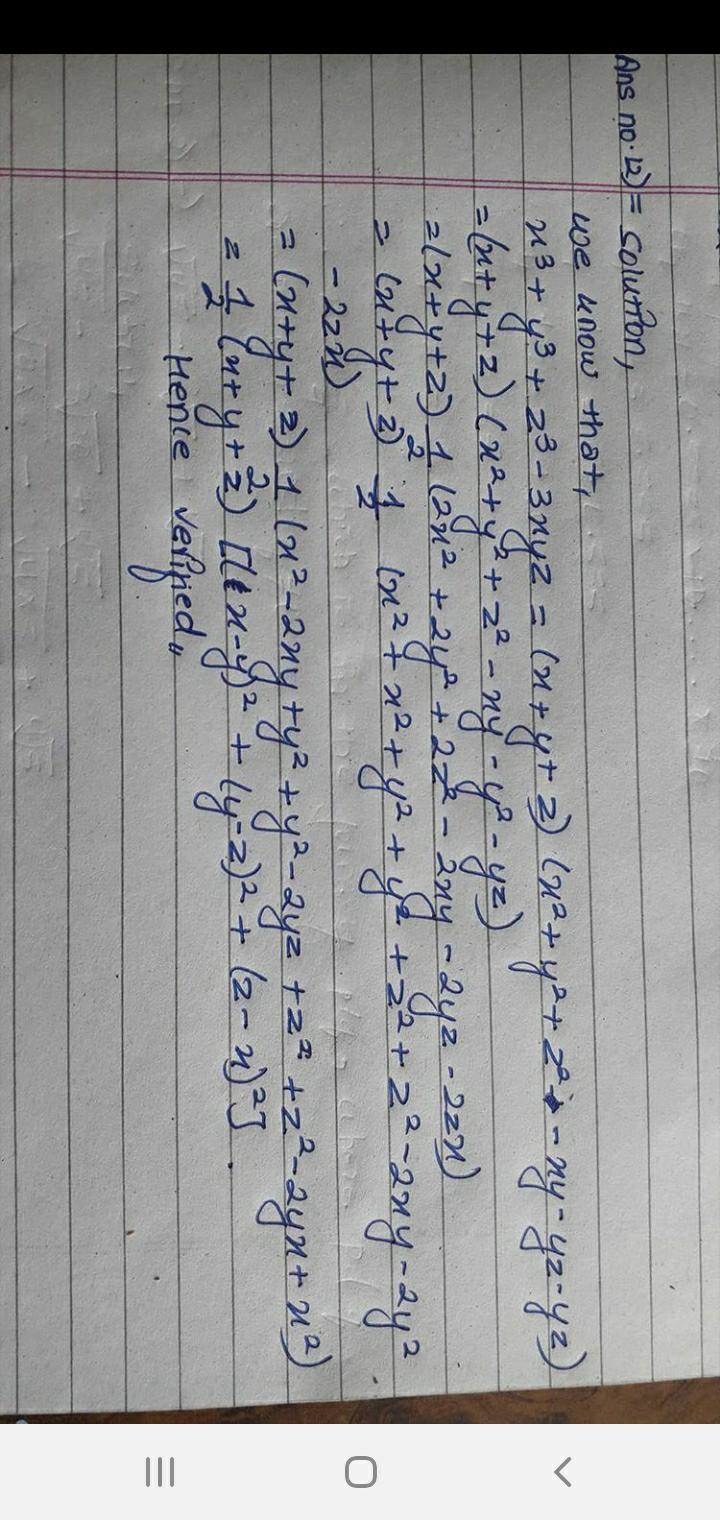 Ans no.12)= Solution,
we know that,
x³ + y³ + z³ - 3xyz = (x + y + z) (x² + y² + z² - xy - yz - yz)
= (x + y + z) (x² + y² + z² - xy - y² - yz)
= (x + y + z) 1/2 (2x² + 2y² + 2z² - 2xy - 2yz - 2zx)
= (x + y + z) 1/2 (x² + x² + y² + y² + z² + z² - 2xy - 2y²
- 2zx)
= (x + y + z) 1/2 (x² - 2xy + y² + y² - 2yz + z² + z² - 2yx + x²)
= 1/2 (x + y + z) [(x - y)² + (y - z)² + (z - x)²].
Hence verified,,